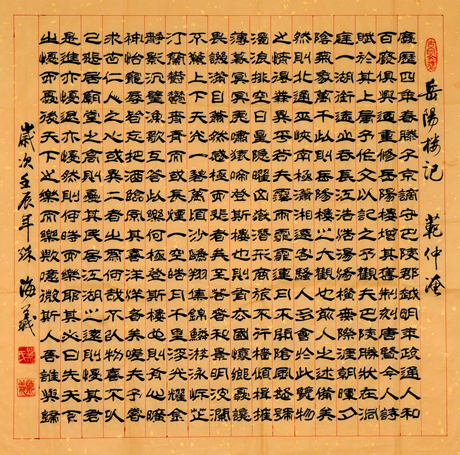 岳陽樓記 範仲淹
慶歷四年春滕子京謫守巴陵郡越明年政通人和
百廢具興乃重修岳陽樓增其舊制刻唐賢今人詩
賦於其上屬予作文以記之予觀夫巴陵勝狀在洞
庭一湖銜遠山吞長江浩浩湯湯橫無際涯朝暉夕
陰氣象萬千此則岳陽樓之大觀也前人之述備矣
然則北通巫峽南極瀟湘遷客騷人多會於此覽物
之情得無異乎若夫霪雨霏霏連月不開陰風怒號
濁浪排空日星隱曜山岳潛形商旅不行檣傾楫摧
薄暮冥冥虎嘯猿啼登斯樓也則有去國懷鄉憂讒
畏譏滿目蕭然感極而悲者矣至若春和景明波瀾
不驚上下天光一碧萬頃沙鷗翔集錦鱗游泳岸芷
汀蘭鬱鬱青青而或長煙一空皓月千里浮光耀金
靜影沉璧漁歌互答此樂何極登斯樓也則有心曠
神怡寵辱皆忘把酒臨風其喜洋洋者矣嗟夫予嘗
求古仁人之心或異二者之為何哉不以物喜不以
己悲居廟堂之高則憂其民處江湖之遠則憂其君
是進亦憂退亦憂然則何時而樂耶其必曰先天下
之憂而憂後天下之樂而樂歟噫微斯人吾誰與歸
歲次壬辰年 海義